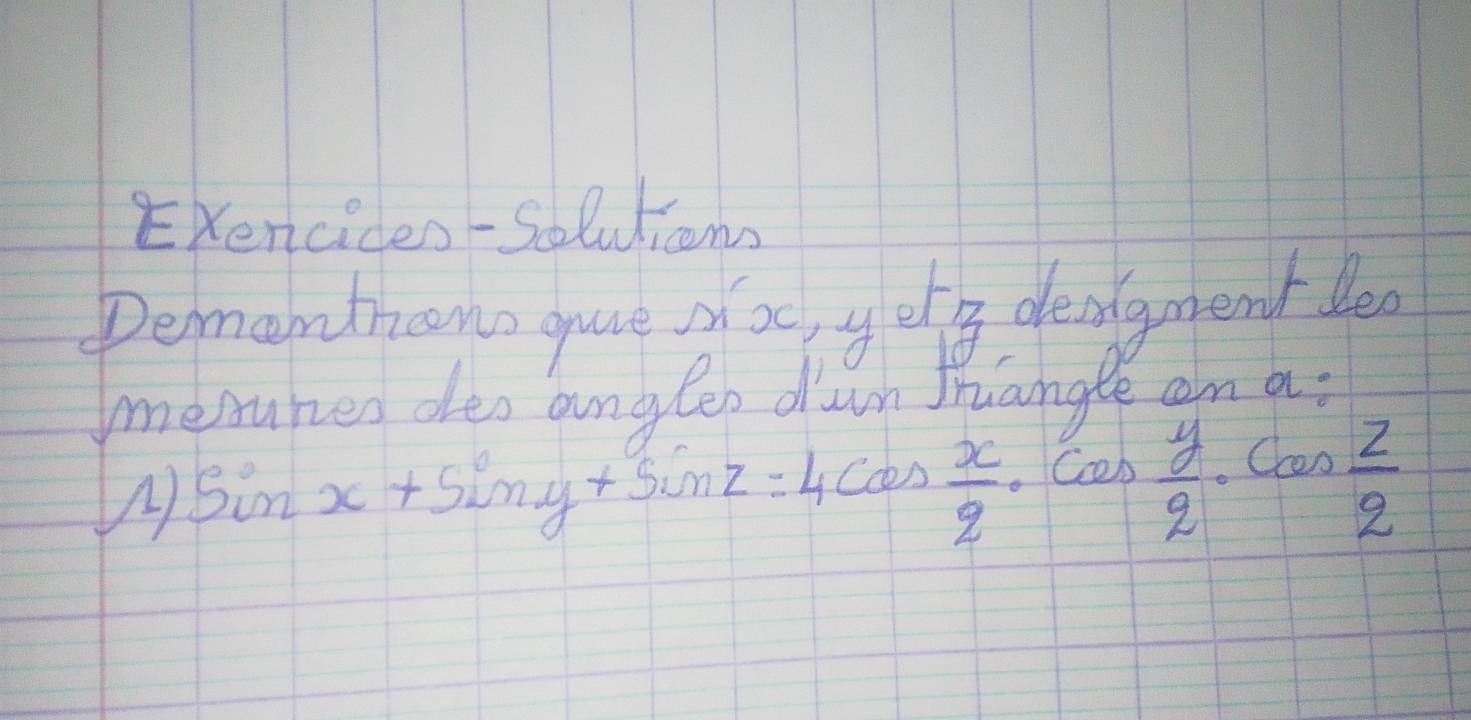 Exercices - Solutions
Demontrons que si x, y et z designent les
mesures des angles d'un triangle on a :
1) Sin x + Siny + Sinz = 4 Cos x/2 . Cos y/2 . Cos z/2